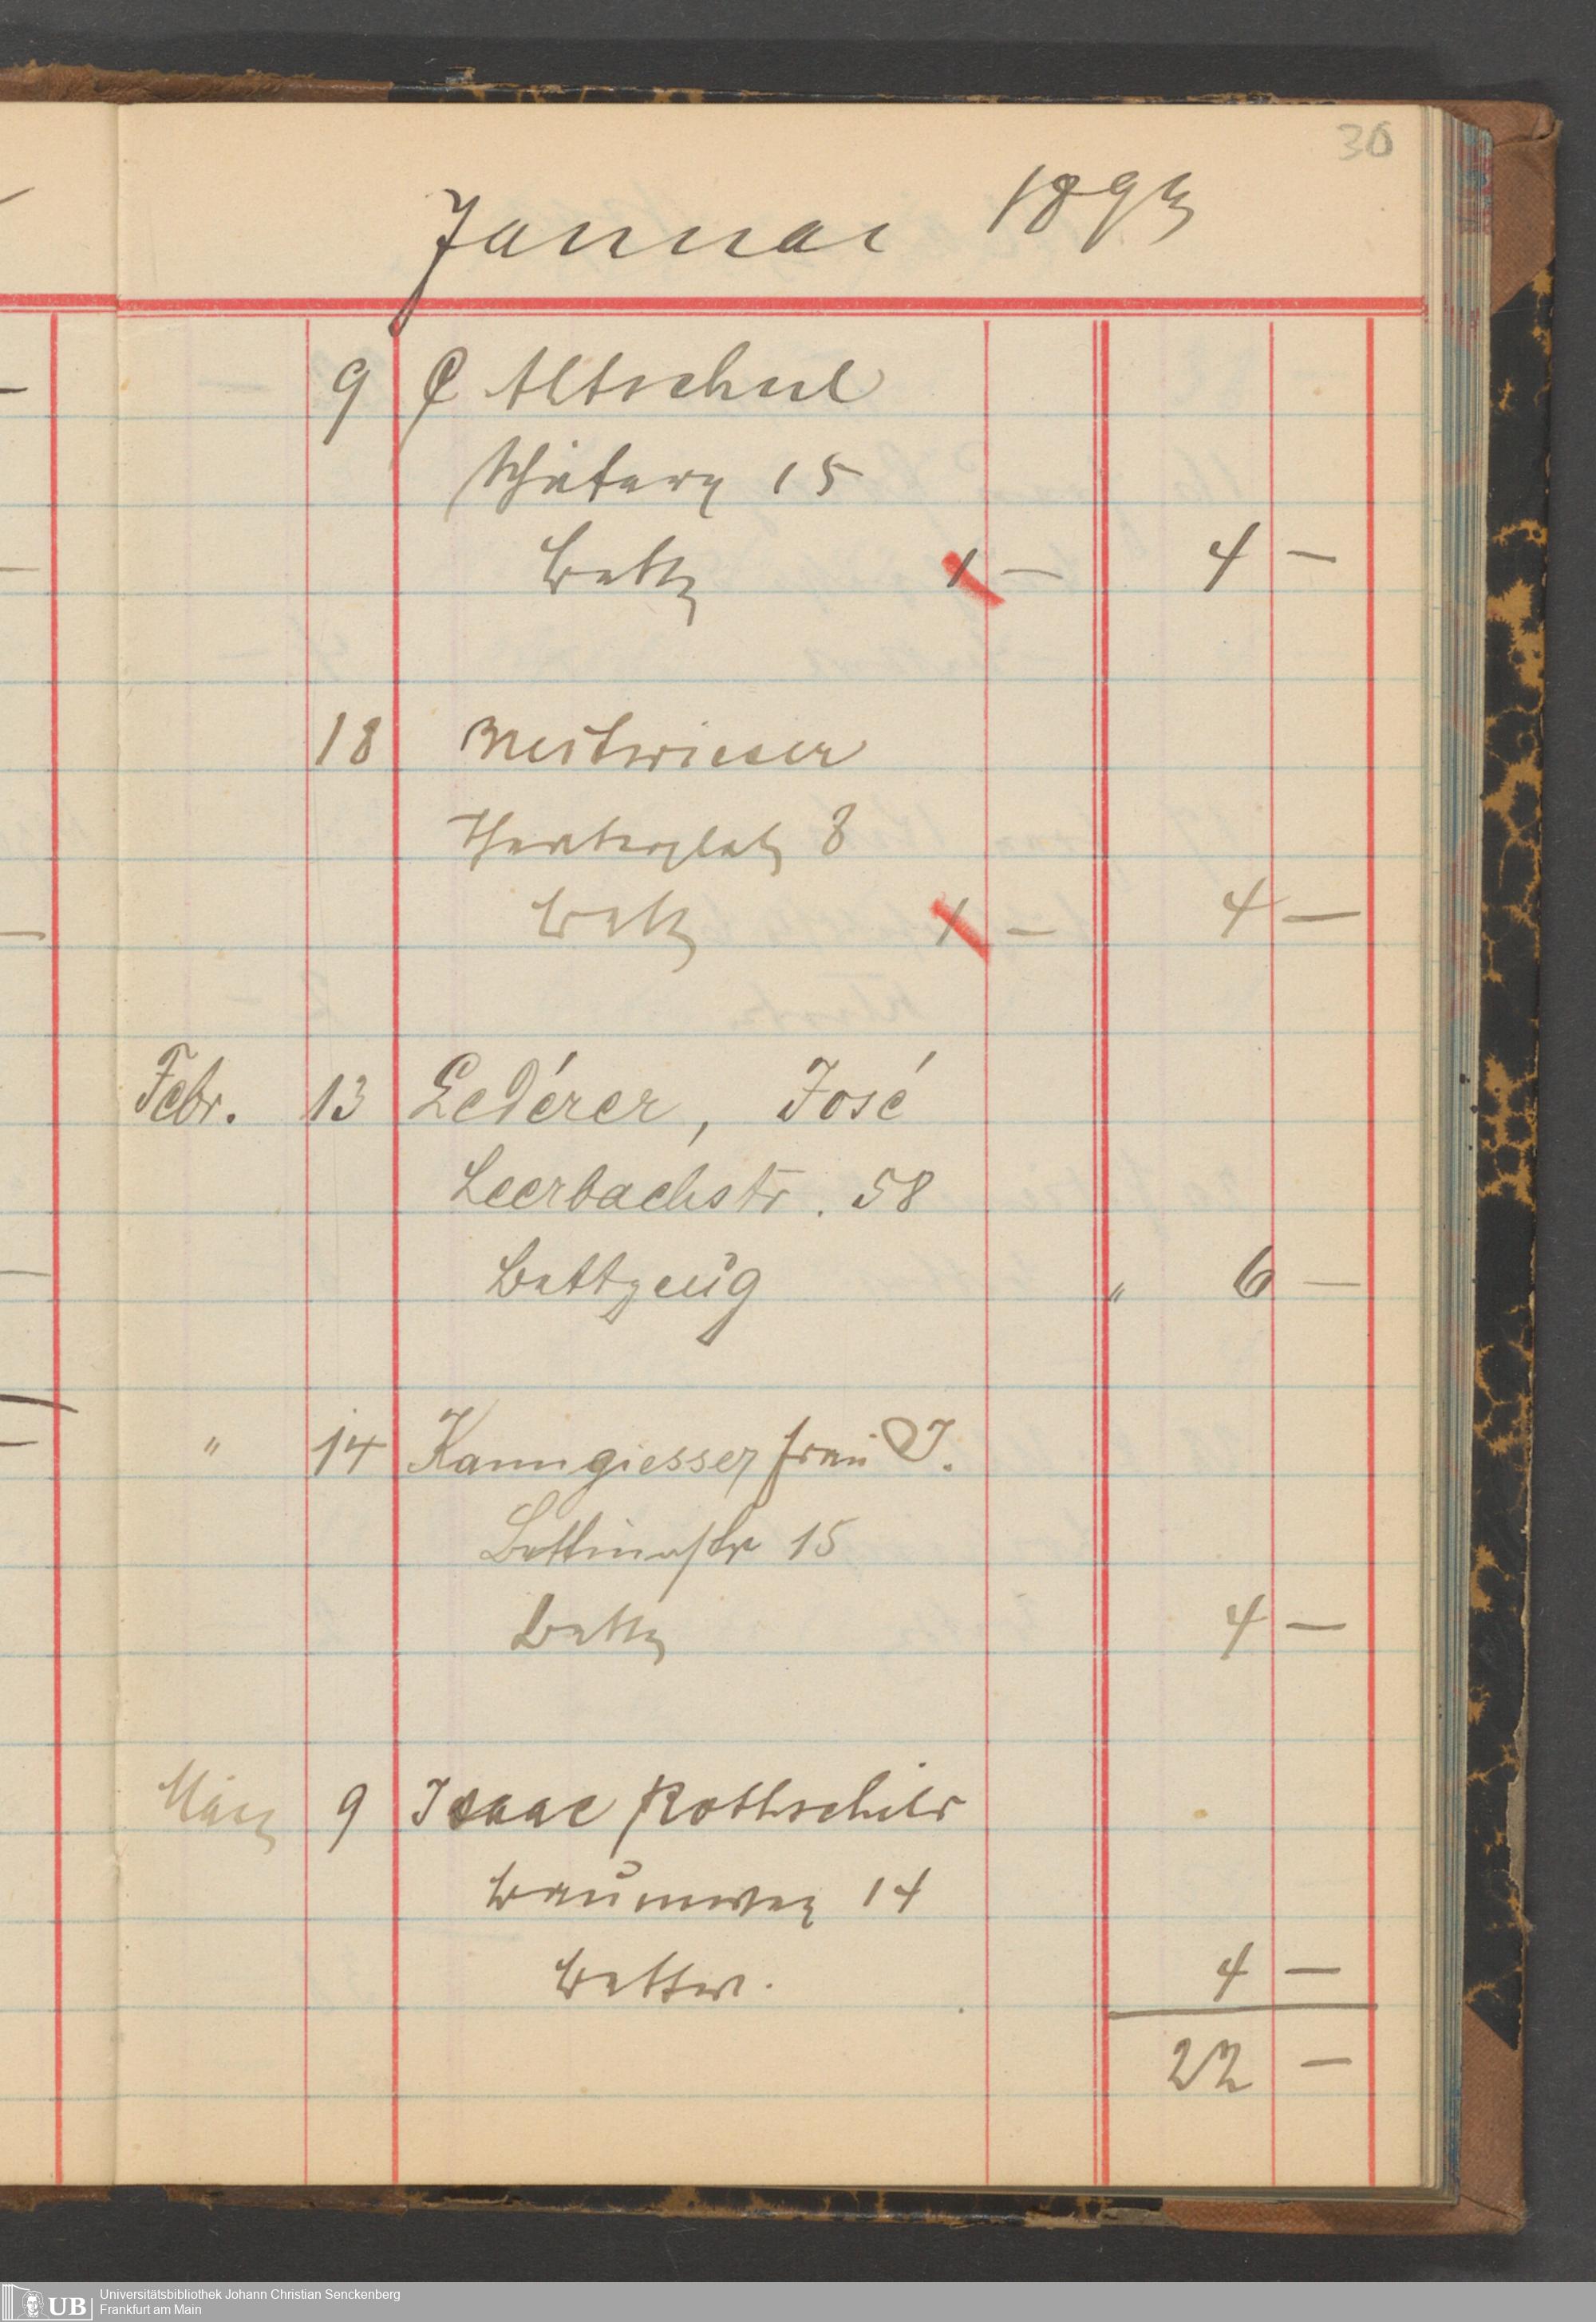 30
Januar 1893
9 C Altschul
15
Bettz 1 — 4 —
18 Nestwieser
Theaterplatz 8
Bettz 1 — 4 —
Febr. 13 Ledérer, José
Leerbachstr. 58
Bettzeug " 6 —
" 14 Kanngiesser Frau J.
Bettinastr 15
Bettz 4 —
März 9 Isaac Rothschild
Baumweg 14
Bettw. 4 —
22 —
UB Universitätsbibliothek Johann Christian Senckenberg
Frankfurt am Main